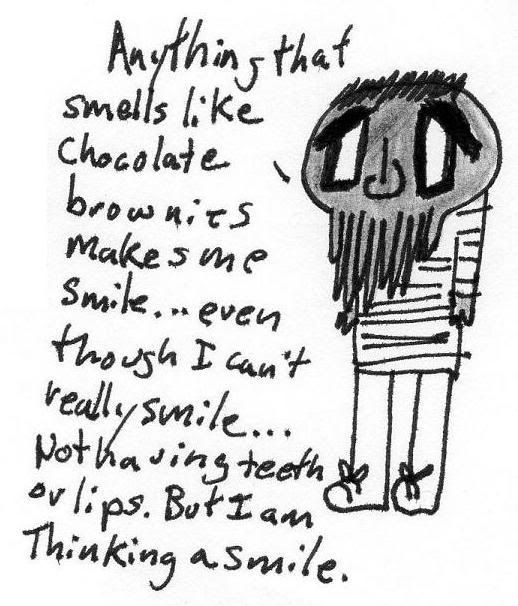 Anything that
smells like
Chocolate
brownies
makes me
smile...even
though I can't
really smile...
Not having teeth
or lips. But I am
Thinking a smile.